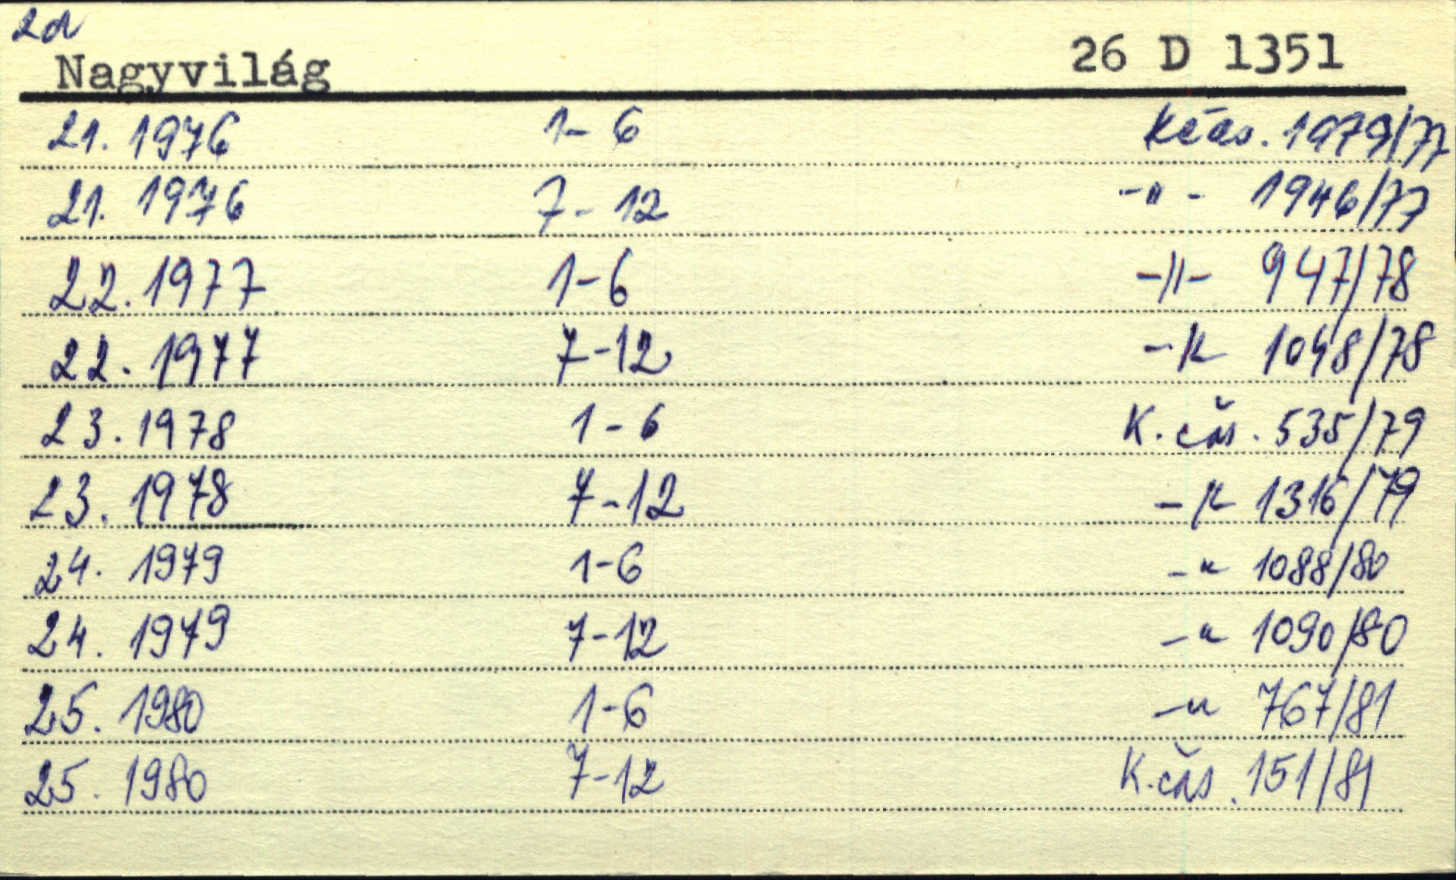 2d
Nagyvilág 26 D 1351
21. 1976 1-6 K čás. 1979/77
21. 1976 7-12 -"- 1946/77
22. 1977 1-6 -"- 947/78
22. 1977 7-12 -"- 1048/78
23. 1978 1-6 K. čas. 535/79
23. 1978 7-12 -"- 1316/79
24. 1979 1-6 -"- 1088/80
24. 1979 7-12 -"- 1090/80
25. 1980 1-6 -"- 767/81
25. 1980 7-12 K. čas. 151/81